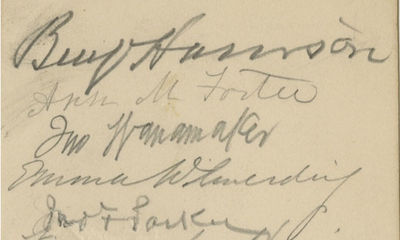 Benj Harrison
Ann M Foster
Jno Wanamaker
Emma
Jno F Parker